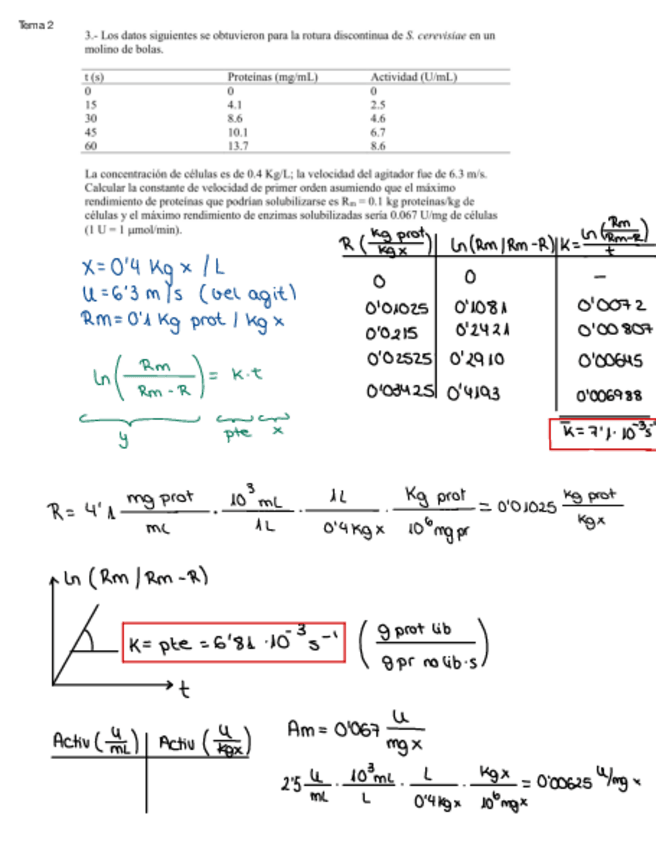 Tema 2
3.- Los datos siguientes se obtuvieron para la rotura discontinua de S. cerevisiae en un
molino de bolas.
t (s) Proteínas (mg/mL) Actividad (U/mL)
0 0 0
15 4.1 2.5
30 8.6 4.6
45 10.1 6.7
60 13.7 8.6
La concentración de células es de 0.4 Kg/L; la velocidad del agitador fue de 6.3 m/s.
Calcular la constante de velocidad de primer orden asumiendo que el máximo
rendimiento de proteínas que podrían solubilizarse es Rm = 0.1 kg proteínas/kg de
células y el máximo rendimiento de enzimas solubilizadas sería 0.067 U/mg de células
(1 U = 1 µmol/min).
R (Kg prot / Kg x) | Ln (Rm / Rm - R) | K = Ln (Rm / Rm - R) / t
0 0 -
0'01025 0'1081 0'0072
0'0215 0'2421 0'00807
0'02525 0'2910 0'00645
0'03425 0'4193 0'006988
K̄ = 7'1 · 10⁻³ s⁻¹
X = 0'4 Kg x / L
u = 6'3 m/s (vel agit)
Rm = 0'1 Kg prot / Kg x
Ln (Rm / Rm - R) = K · t
y pte x
R = 4'1 mg prot / mL · 10³ mL / 1L · 1L / 0'4 Kg x · Kg prot / 10⁶ mg pr = 0'01025 Kg prot / Kg x
Ln (Rm / Rm - R)
K = pte = 6'81 · 10⁻³ s⁻¹ (g prot lib / g pr no lib · s)
t
Activ (U / mL) | Activ (U / Kg x)
Am = 0'067 U / mg x
2'5 U / mL · 10³ mL / L · L / 0'4 Kg x · Kg x / 10⁶ mg x = 0'00625 U/mg x